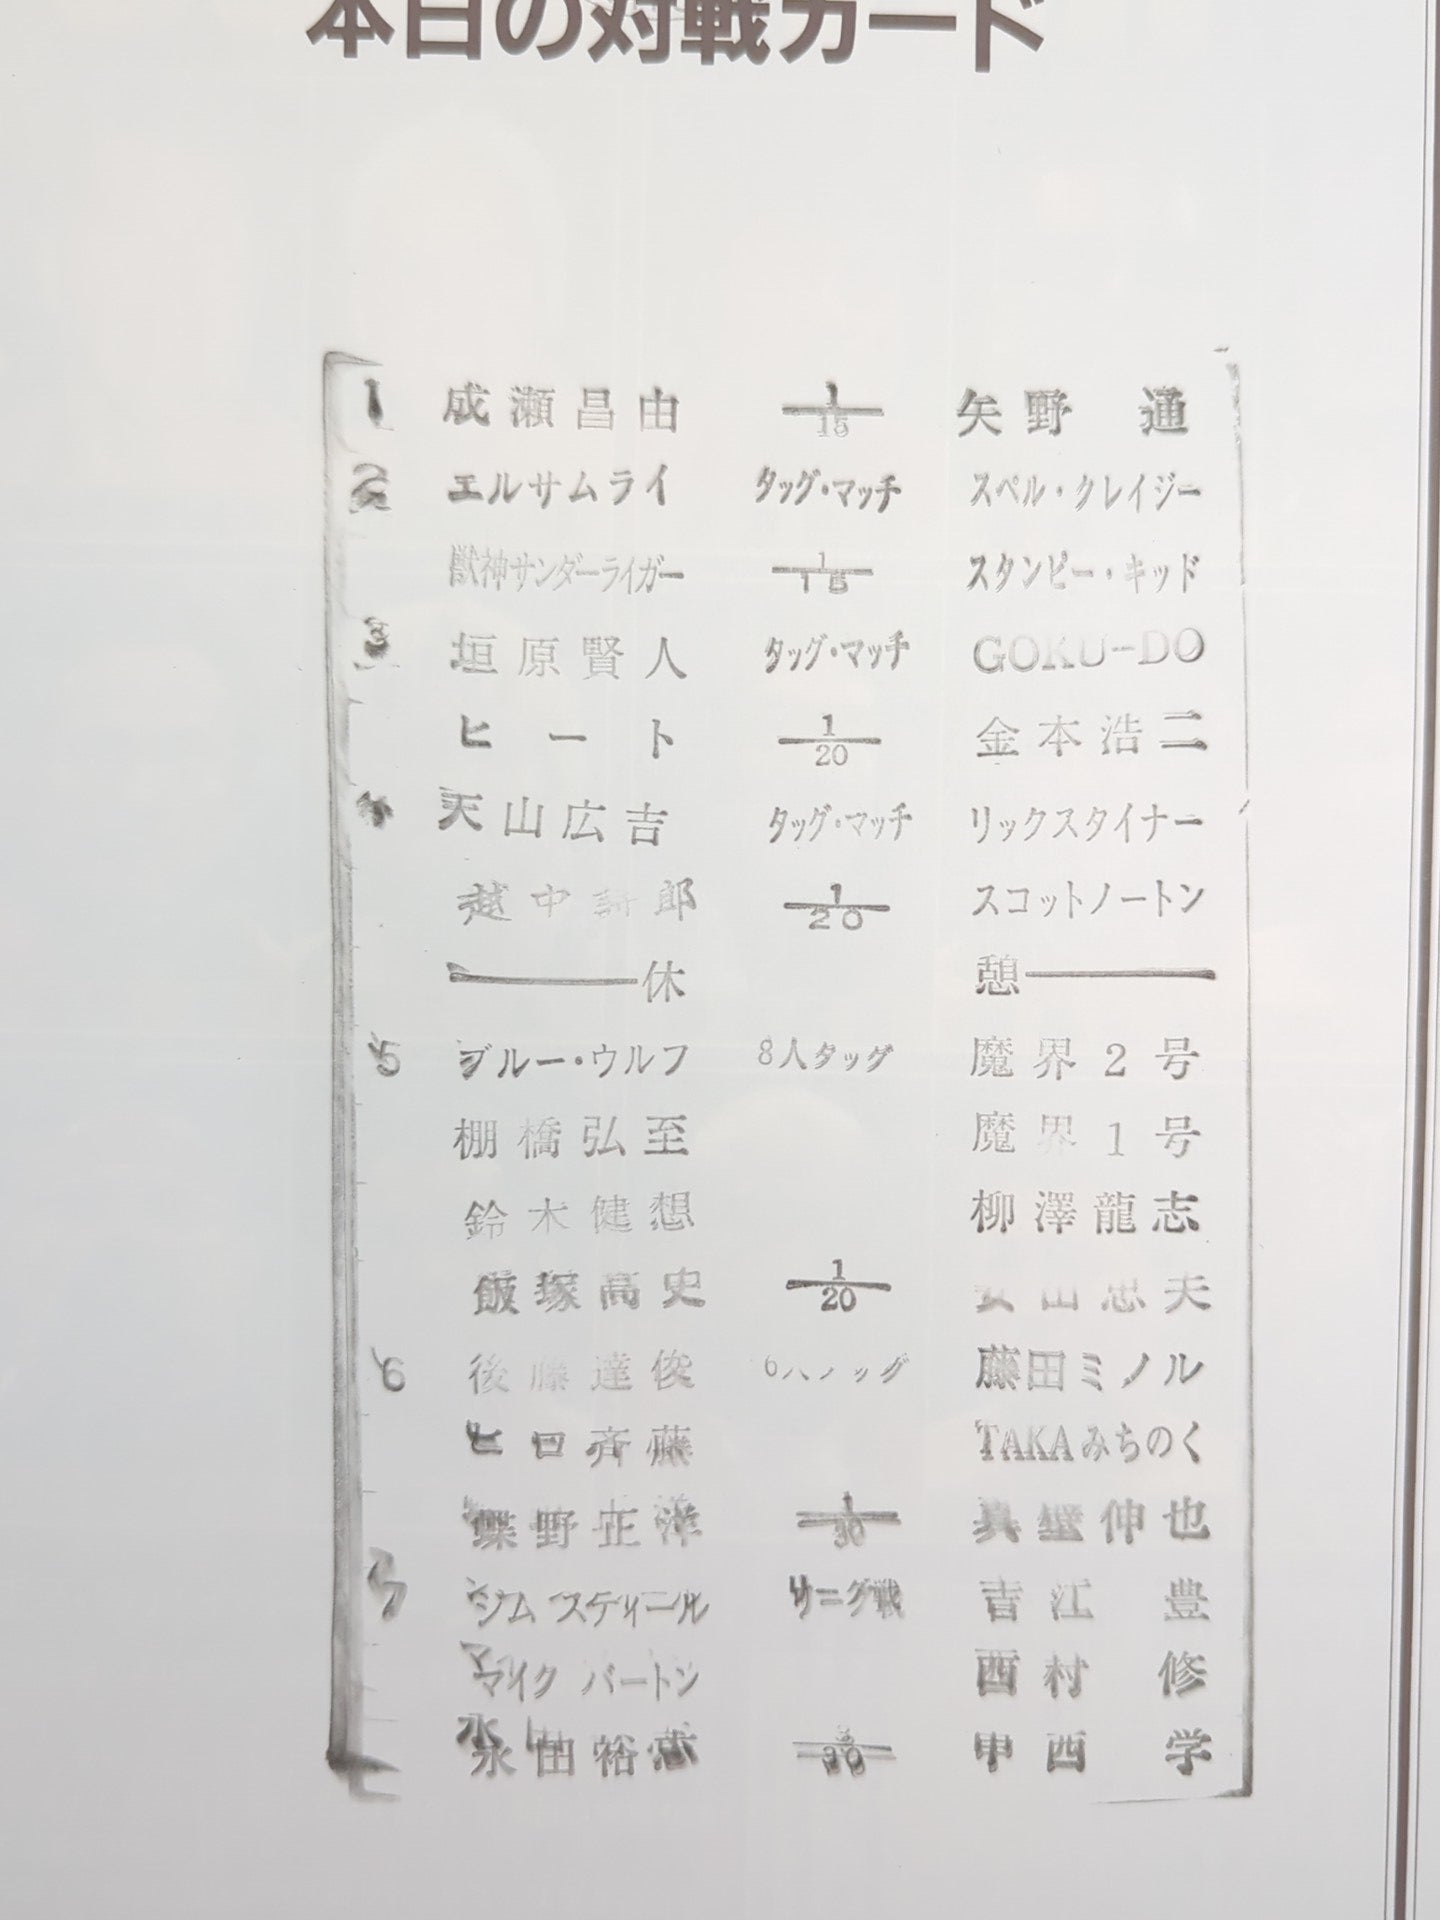 本日の対戦カード
1 成瀬昌由 1/15 矢野 通
2 エルサムライ タッグ・マッチ スペル・クレイジー
獣神サンダーライガー 1/15 スタンピー・キッド
3 垣原賢人 タッグ・マッチ GOKU-DO
ヒート 1/20 金本浩二
4 天山広吉 タッグ・マッチ リックスタイナー
越中詩郎 1/20 スコットノートン
休 憩
5 ブルー・ウルフ 8人タッグ 魔界2号
棚橋弘至 魔界1号
鈴木健想 柳澤龍志
飯塚高史 1/20 安田忠夫
6 後藤達俊 6人タッグ 藤田ミノル
ヒロ斉藤 TAKAみちのく
蝶野正洋 1/30 真壁伸也
7 ジム スティール リーグ戦 吉江 豊
マイク バートン 西村 修
永田裕志 3/30 中西 学